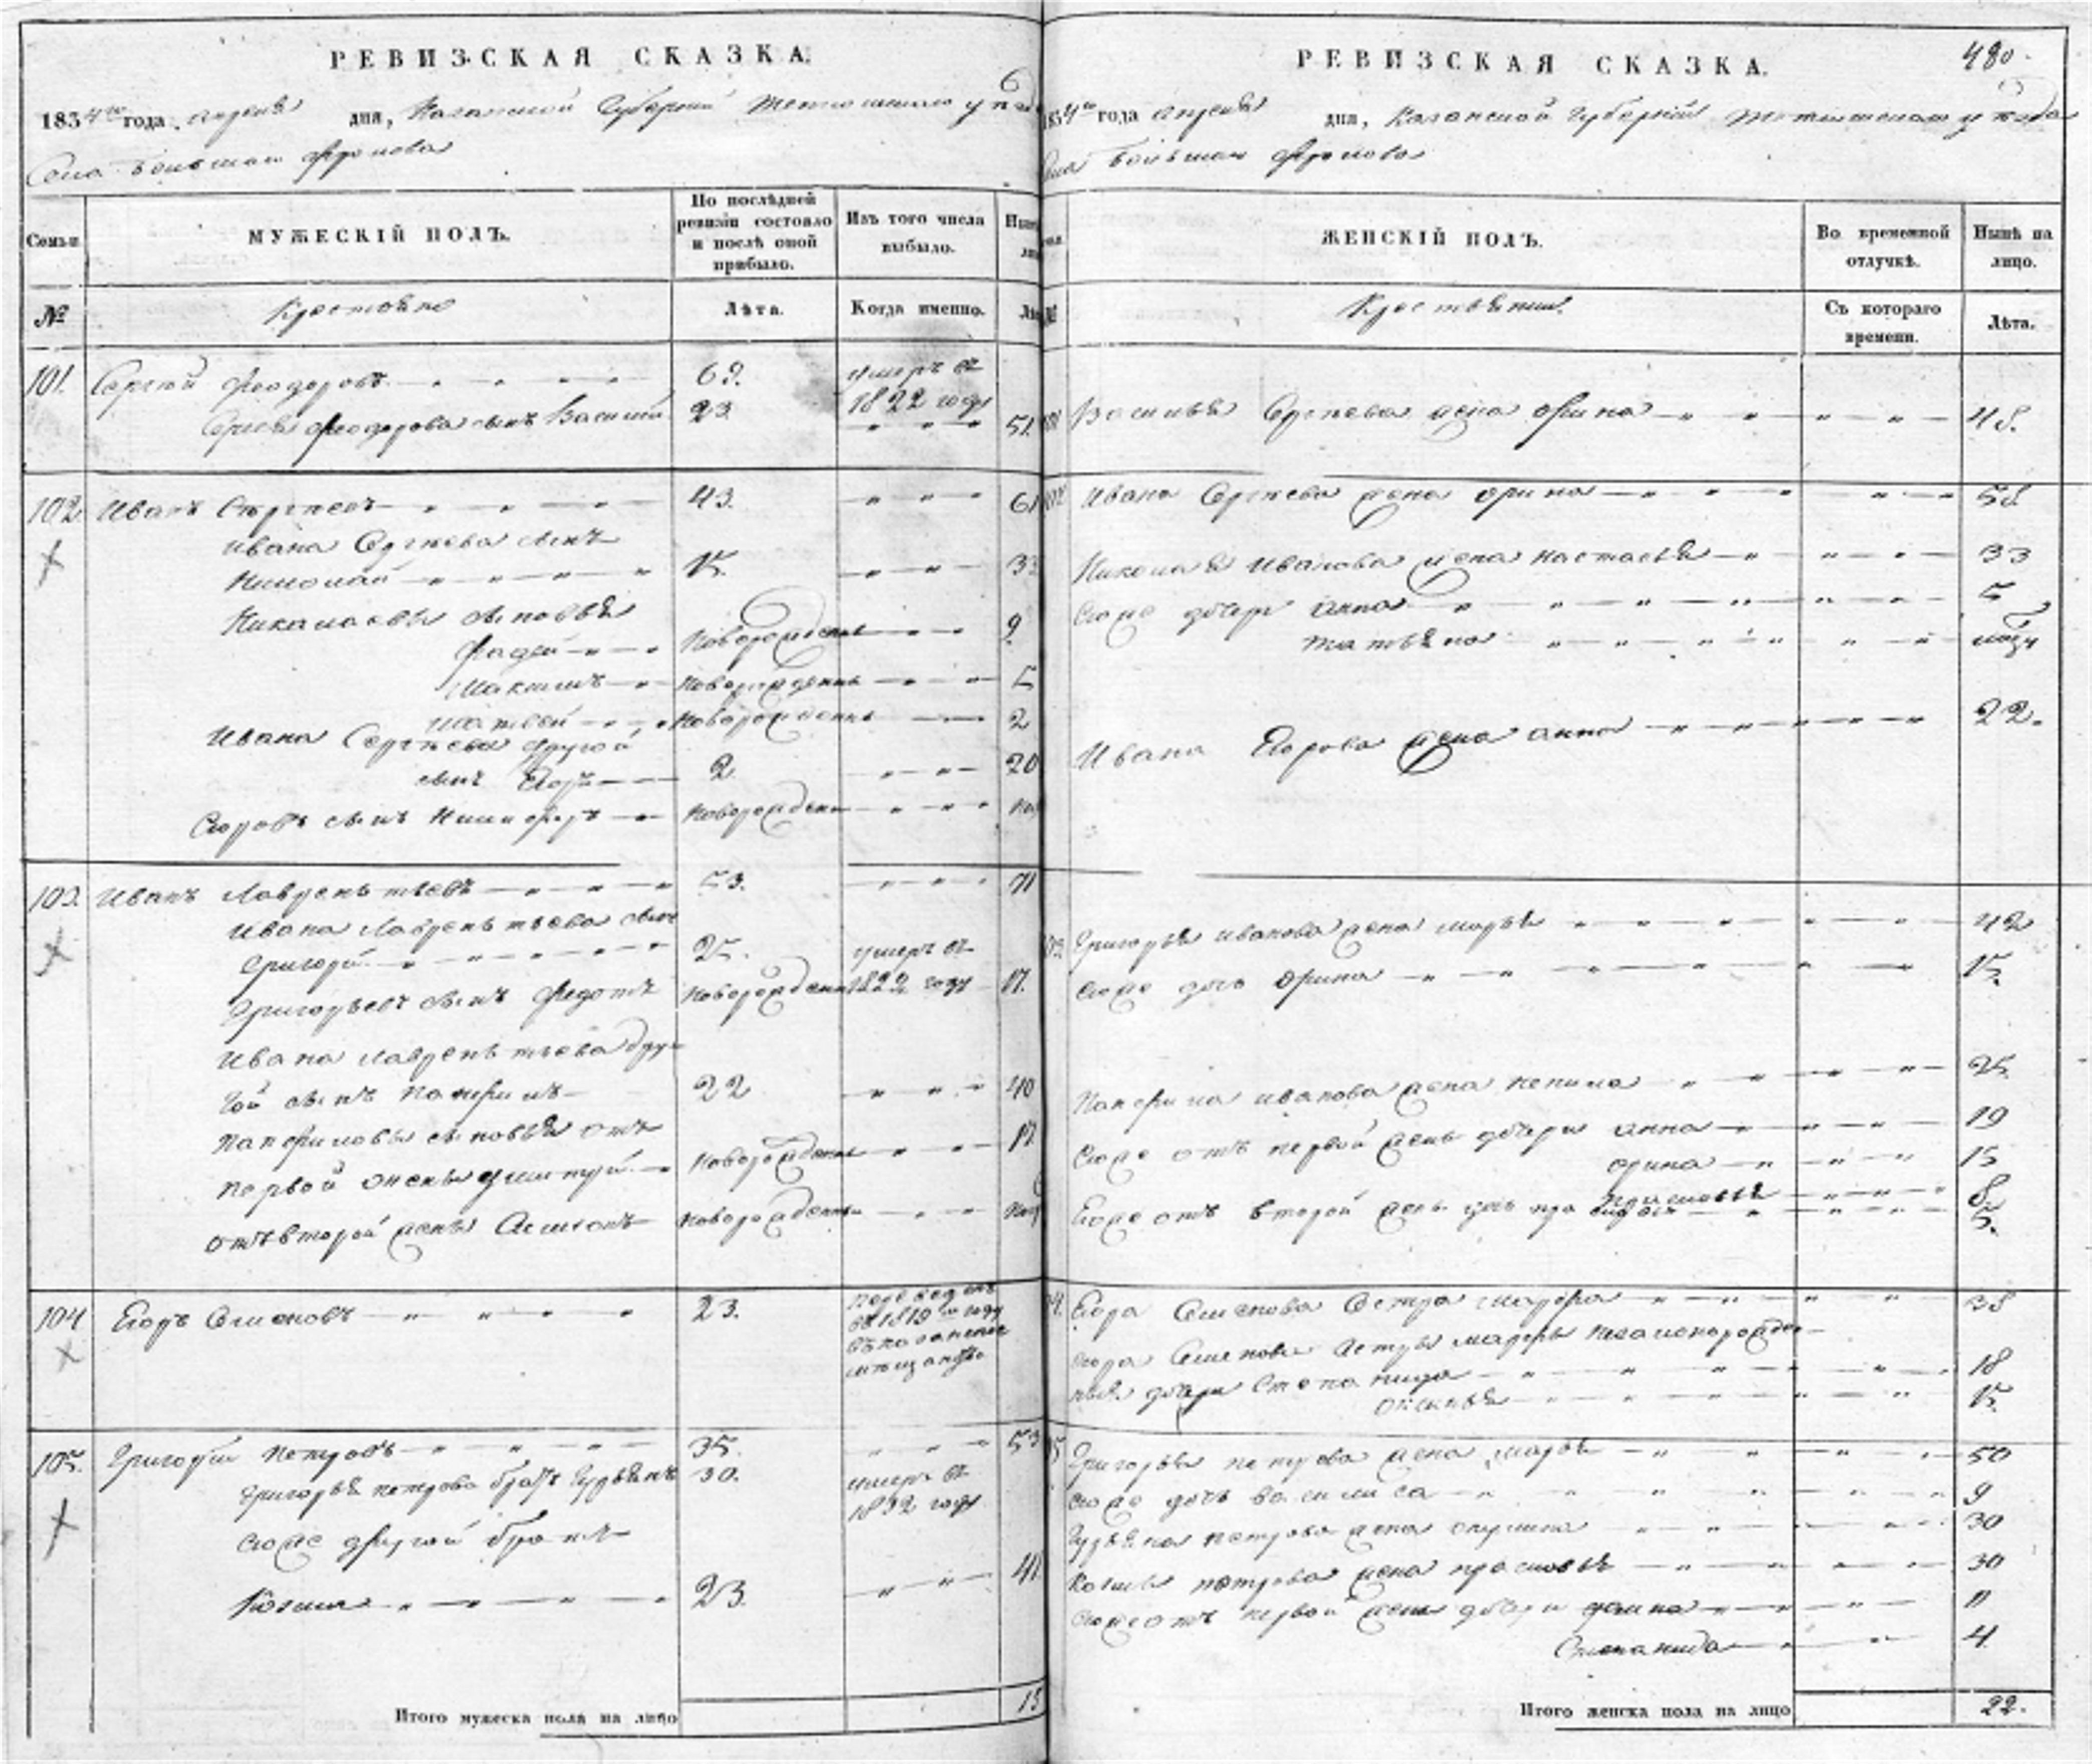 РЕВИЗСКАЯ СКАЗКА.
1834го года апреля дня, Казанской Губернии Тетюшскаго уезда
Села большой Фролова
Семьи.
МУЖЕСКІЙ ПОЛЪ.
По послѣдней ревизіи состояло и послѣ оной прибыло.
Изъ того числа выбыло.
№
Крестьяне
Лѣта.
Когда именно.
101. Сергей Феодоровъ 62. умеръ въ 1822 году
Сергея Феодорова сынъ Василий 23. 51
102 Иванъ Сергеевъ 43. 61
Ивана Сергеева сынъ
Николай 15. 33
Николаевы сыновья
Фадей Новорожденъ 9
Максимъ Новорожденъ 5
Матвей Новорожденъ 2
Ивана Сергеева другой
сынъ Егоръ 2 20
Егоровъ сынъ Никифоръ Новорожденъ
103. Иванъ Лаврентьевъ 53. 71
Ивана Лаврентьева сынъ
Григорій 25. умеръ въ
Григорьевъ сынъ Федотъ Новорожденъ 1822 году 17.
Ивана Лаврентьева дру-
гой сынъ Панфилъ 22 40
Панфиловы сыновья отъ
первой жены Новорожденъ 17.
отъ второй жены Новорожденъ
104 Егоръ Семеновъ 23. въ 1819м году
105. Григорий Петровъ 35. 53
Григорья Петрова братъ 30. умеръ въ 1832 году
Егоже другой братъ
Козма 23. 41
Итого мужеска пола на лицо 15
РЕВИЗСКАЯ СКАЗКА.
480.
1834го года апреля дня, Казанской Губернии Тетюшскаго уезда
Села большой Фролова
ЖЕНСКІЙ ПОЛЪ.
Во временной отлучкѣ.
Нынѣ на лицо.
Съ котораго времени.
Лѣта.
Василья Сергеева жена Орина 48.
Ивана Сергеева жена Орина 58
Николая Иванова жена Настасья 33
Егоже дочери Анна 5
Татьяна
Ивана Егорова жена Анна 22.
Григорья Иванова жена Марья 42
Егоже дочь Орина 15.
Панфила Иванова жена 25.
Егоже отъ первой жены дочери Анна 19
Орина 15
Егоже отъ второй жены 8.
5.
Егора Семенова сестра Марфа 38
Егора Семенова сестры Марфы незаконорожден-
ныя дочери Степанида 18
15.
Григорья Петрова жена Марья 50
Егоже дочь Василиса 9
Петрова жена 30
Козмы Петрова жена Прасковья 30
Егоже отъ первой жены дочери 11
Степанида 4
Итого женска пола на лицо 22.